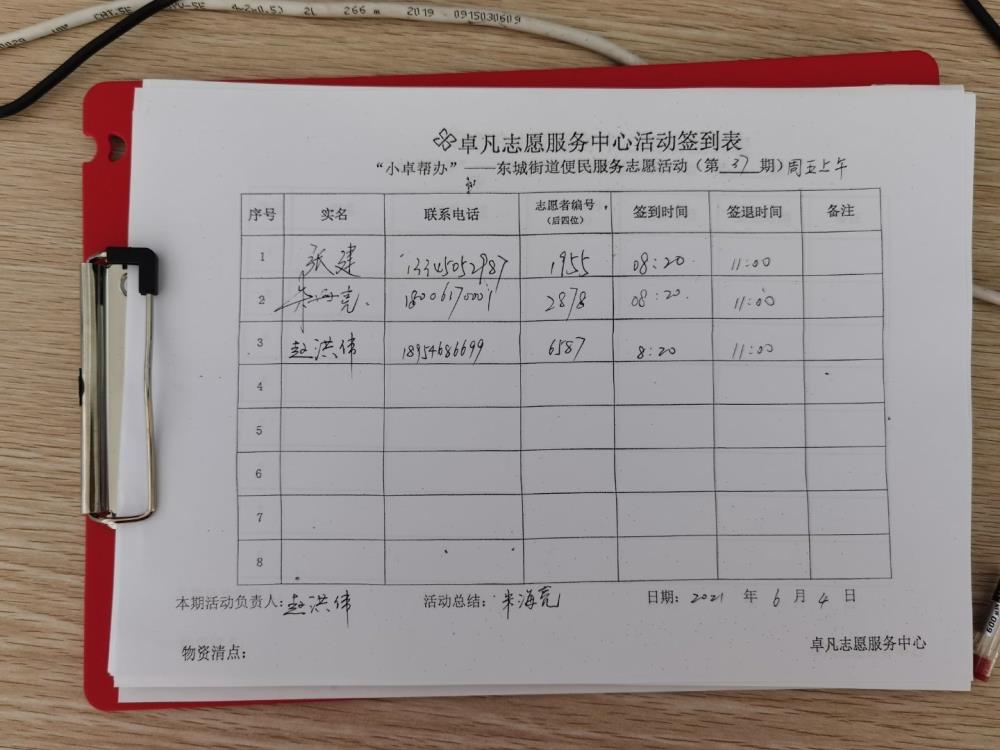 266 m 2019 - 0915030609
卓凡志愿服务中心活动签到表
“小卓帮办”——东城街道便民服务志愿活动（第 37 期）周五上午
序号 实名 联系电话 志愿者编号（后四位） 签到时间 签退时间 备注
1 张建 13345052987 1955 08:20 11:00
2 朱海亮 18006170001 2878 08:20 11:00
3 赵洪伟 18954686699 6587 8:20 11:00
4
5
6
7
8
本期活动负责人：赵洪伟 活动总结：朱海亮 日期：2021 年 6 月 4 日
物资清点： 卓凡志愿服务中心